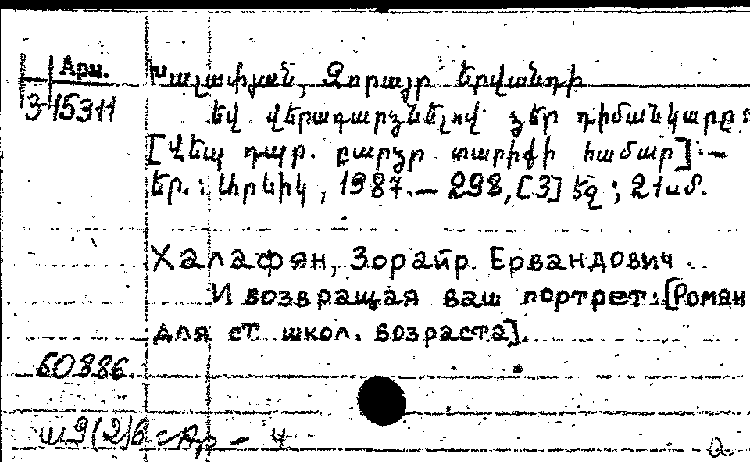 Арм.
3-15311
Խալափյան, Զորայր Երվանդի
Եվ վերադարձնելով ձեր դիմանկարը:
[Վեպ դպր. բարձր տարիքի համար]. —
Եր.: Արևիկ, 1987. — 298, [3] էջ; 21սմ.
Халафян, Зорайр Ервандович.
И возвращая ваш портрет: [Роман
для ст. школ. возраста].
60886